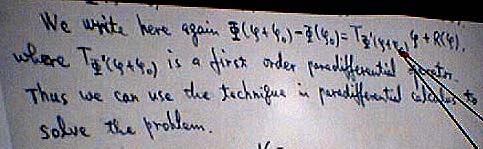 We write here again Φ(φ+φ₀)-Φ(φ₀)=T_Φ'(φ+φ₀) φ+R(φ),
where T_Φ'(φ+φ₀) is a first order paradifferential operator.
Thus we can use the technique in paradifferential calculus to
solve the problem.